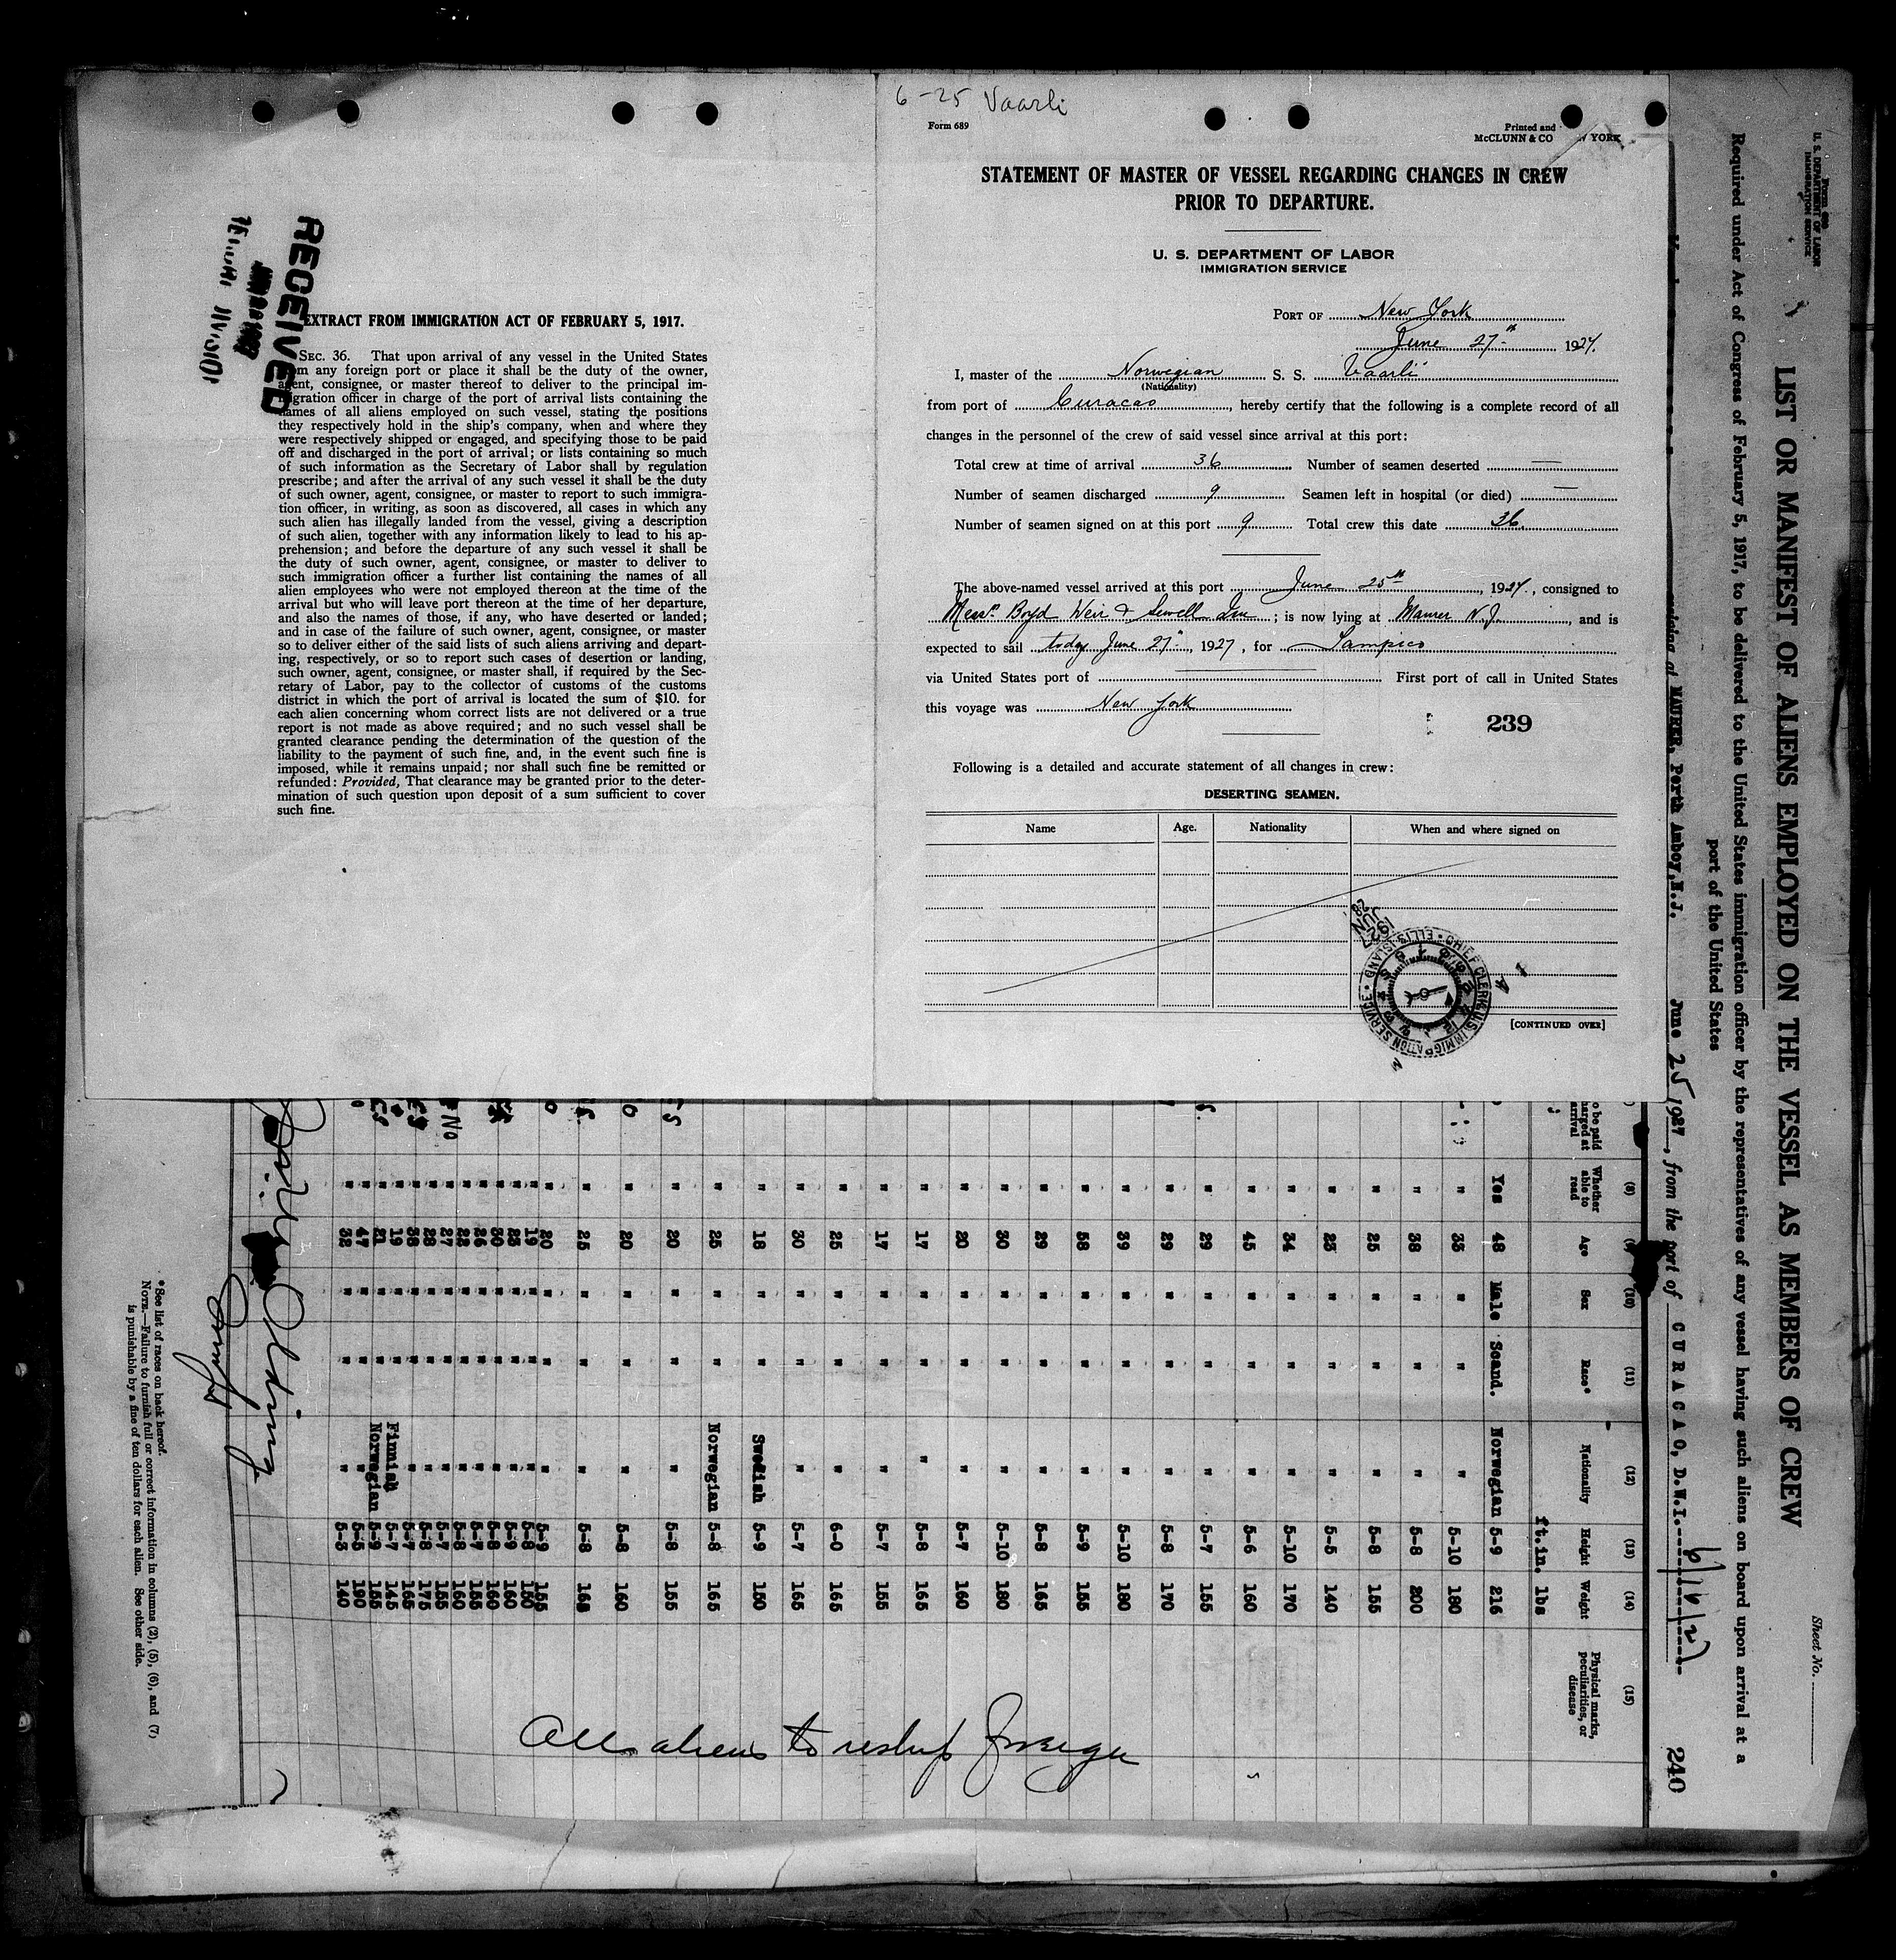 6-25 Vaarli
Form 689
Printed and
McCLUNN & CO
YORK
STATEMENT OF MASTER OF VESSEL REGARDING CHANGES IN CREW
PRIOR TO DEPARTURE.
U. S. DEPARTMENT OF LABOR
IMMIGRATION SERVICE
PORT OF New York
June 27th 1927.
I, master of the Norwegian S. S. Vaarli
(Nationality)
from port of Curacao, hereby certify that the following is a complete record of all
changes in the personnel of the crew of said vessel since arrival at this port:
Total crew at time of arrival 36 Number of seamen deserted —
Number of seamen discharged 9 Seamen left in hospital (or died) —
Number of seamen signed on at this port 9 Total crew this date 36.
The above-named vessel arrived at this port June 25th, 1927, consigned to
Messrs Boyd Weir & Sewell Inc; is now lying at Maurer N.J., and is
expected to sail today June 27th, 1927, for Tampico
via United States port of First port of call in United States
this voyage was New York
239
Following is a detailed and accurate statement of all changes in crew:
DESERTING SEAMEN.
Name Age. Nationality When and where signed on
CHIEF CLERK U.S. IMMIGRATION SERVICE • ELLIS ISLAND •
1927 JUN 28
[CONTINUED OVER]
RECEIVED
EXTRACT FROM IMMIGRATION ACT OF FEBRUARY 5, 1917.
SEC. 36. That upon arrival of any vessel in the United States
from any foreign port or place it shall be the duty of the owner,
agent, consignee, or master thereof to deliver to the principal im-
migration officer in charge of the port of arrival lists containing the
names of all aliens employed on such vessel, stating the positions
they respectively hold in the ship's company, when and where they
were respectively shipped or engaged, and specifying those to be paid
off and discharged in the port of arrival; or lists containing so much
of such information as the Secretary of Labor shall by regulation
prescribe; and after the arrival of any such vessel it shall be the duty
of such owner, agent, consignee, or master to report to such immigra-
tion officer, in writing, as soon as discovered, all cases in which any
such alien has illegally landed from the vessel, giving a description
of such alien, together with any information likely to lead to his ap-
prehension; and before the departure of any such vessel it shall be
the duty of such owner, agent, consignee, or master to deliver to
such immigration officer a further list containing the names of all
alien employees who were not employed thereon at the time of the
arrival but who will leave port thereon at the time of her departure,
and also the names of those, if any, who have deserted or landed;
and in case of the failure of such owner, agent, consignee, or master
so to deliver either of the said lists of such aliens arriving and depart-
ing, respectively, or so to report such cases of desertion or landing,
such owner, agent, consignee, or master shall, if required by the Sec-
retary of Labor, pay to the collector of customs of the customs
district in which the port of arrival is located the sum of $10. for
each alien concerning whom correct lists are not delivered or a true
report is not made as above required; and no such vessel shall be
granted clearance pending the determination of the question of the
liability to the payment of such fine, and, in the event such fine is
imposed, while it remains unpaid; nor shall such fine be remitted or
refunded: Provided, That clearance may be granted prior to the deter-
mination of such question upon deposit of a sum sufficient to cover
such fine.
U. S. DEPARTMENT OF LABOR
IMMIGRATION SERVICE
Sheet No.
LIST OR MANIFEST OF ALIENS EMPLOYED ON THE VESSEL AS MEMBERS OF CREW
Required under Act of Congress of February 5, 1917, to be delivered to the United States immigration officer by the representatives of any vessel having such aliens on board upon arrival at a
port of the United States
at MAURER, Perth Amboy, N.J. June 25 1927, from the port of CURACAO, D.W.I. 6/16/27
240
(8) (10) (11) (12) (13) (14) (15)
Whether able to read Age Sex Race* Nationality Height Weight Physical marks, peculiarities, or disease
ft.in. lbs
Yes 48 Male Scand. Norwegian 5-9 216
" 35 " " " 5-10 180
" 38 " " " 5-8 200
" 25 " " " 5-8 155
" 23 " " " 5-5 140
" 34 " " " 5-10 170
" 45 " " " 5-6 160
" 29 " " " 5-7 155
" 29 " " " 5-8 170
" 39 " " " 5-10 180
" 58 " " " 5-9 155
" 29 " " " 5-8 165
" 30 " " " 5-10 180
" 20 " " " 5-7 160
" 17 " " " 5-8 165
" 17 " " " 5-7 155
" 25 " " " 6-0 165
" 30 " " " 5-7 165
" 18 " " Swedish 5-9 150
" 25 " " Norwegian 5-8 165
" 20 " " " 5-8 155
" 20 " " " 5-8 160
" 25 " " " 5-8 165
" 20 " " " 5-9 155
" 19 " " " 5-8 150
" 25 " " " 5-9 160
" 30 " " " 5-8 160
" 26 " " " 5-7 155
" 22 " " " 5-8 160
" 27 " " " 5-7 155
" 28 " " " 5-8 175
" 38 " " " 5-7 165
" 19 " " Finnish 5-7 145
" 21 " " Norwegian 5-9 155
" 47 " " " 5-5 190
" 32 " " " 5-3 140
All aliens to reship foreign
*See list of races on back hereof.
NOTE.—Failure to furnish full or correct information in columns (2), (5), (6), and (7)
is punishable by a fine of ten dollars for each alien. See other side.